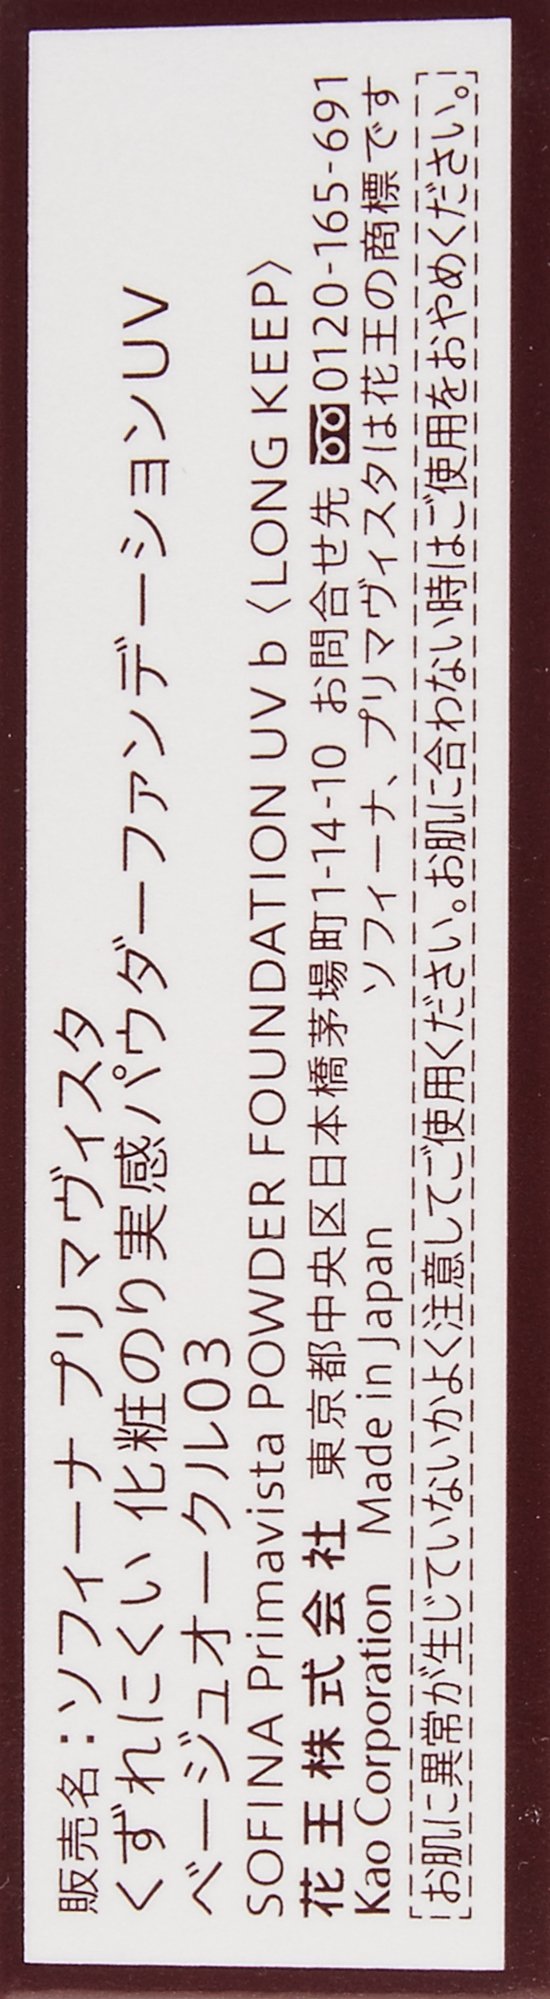 販売名：ソフィーナ プリマヴィスタ
くずれにくい 化粧のり実感パウダーファンデーションUV
ベージュオークル03
SOFINA Primavista POWDER FOUNDATION UV b〈LONG KEEP〉
花王株式会社 東京都中央区日本橋茅場町1-14-10 お問合せ先 0120-165-691
Kao Corporation Made in Japan ソフィーナ、プリマヴィスタは花王の商標です
お肌に異常が生じていないかよく注意してご使用ください。お肌に合わない時はご使用をおやめください。